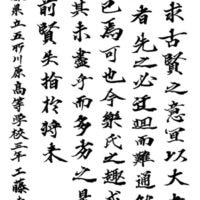 求古賢之意宜以大
者先之必迂迴而難通
已焉可也今樂氏之趣或
其未盡乎而多劣之是
前賢失指於将来
県立五所川原高等学校三年 工藤